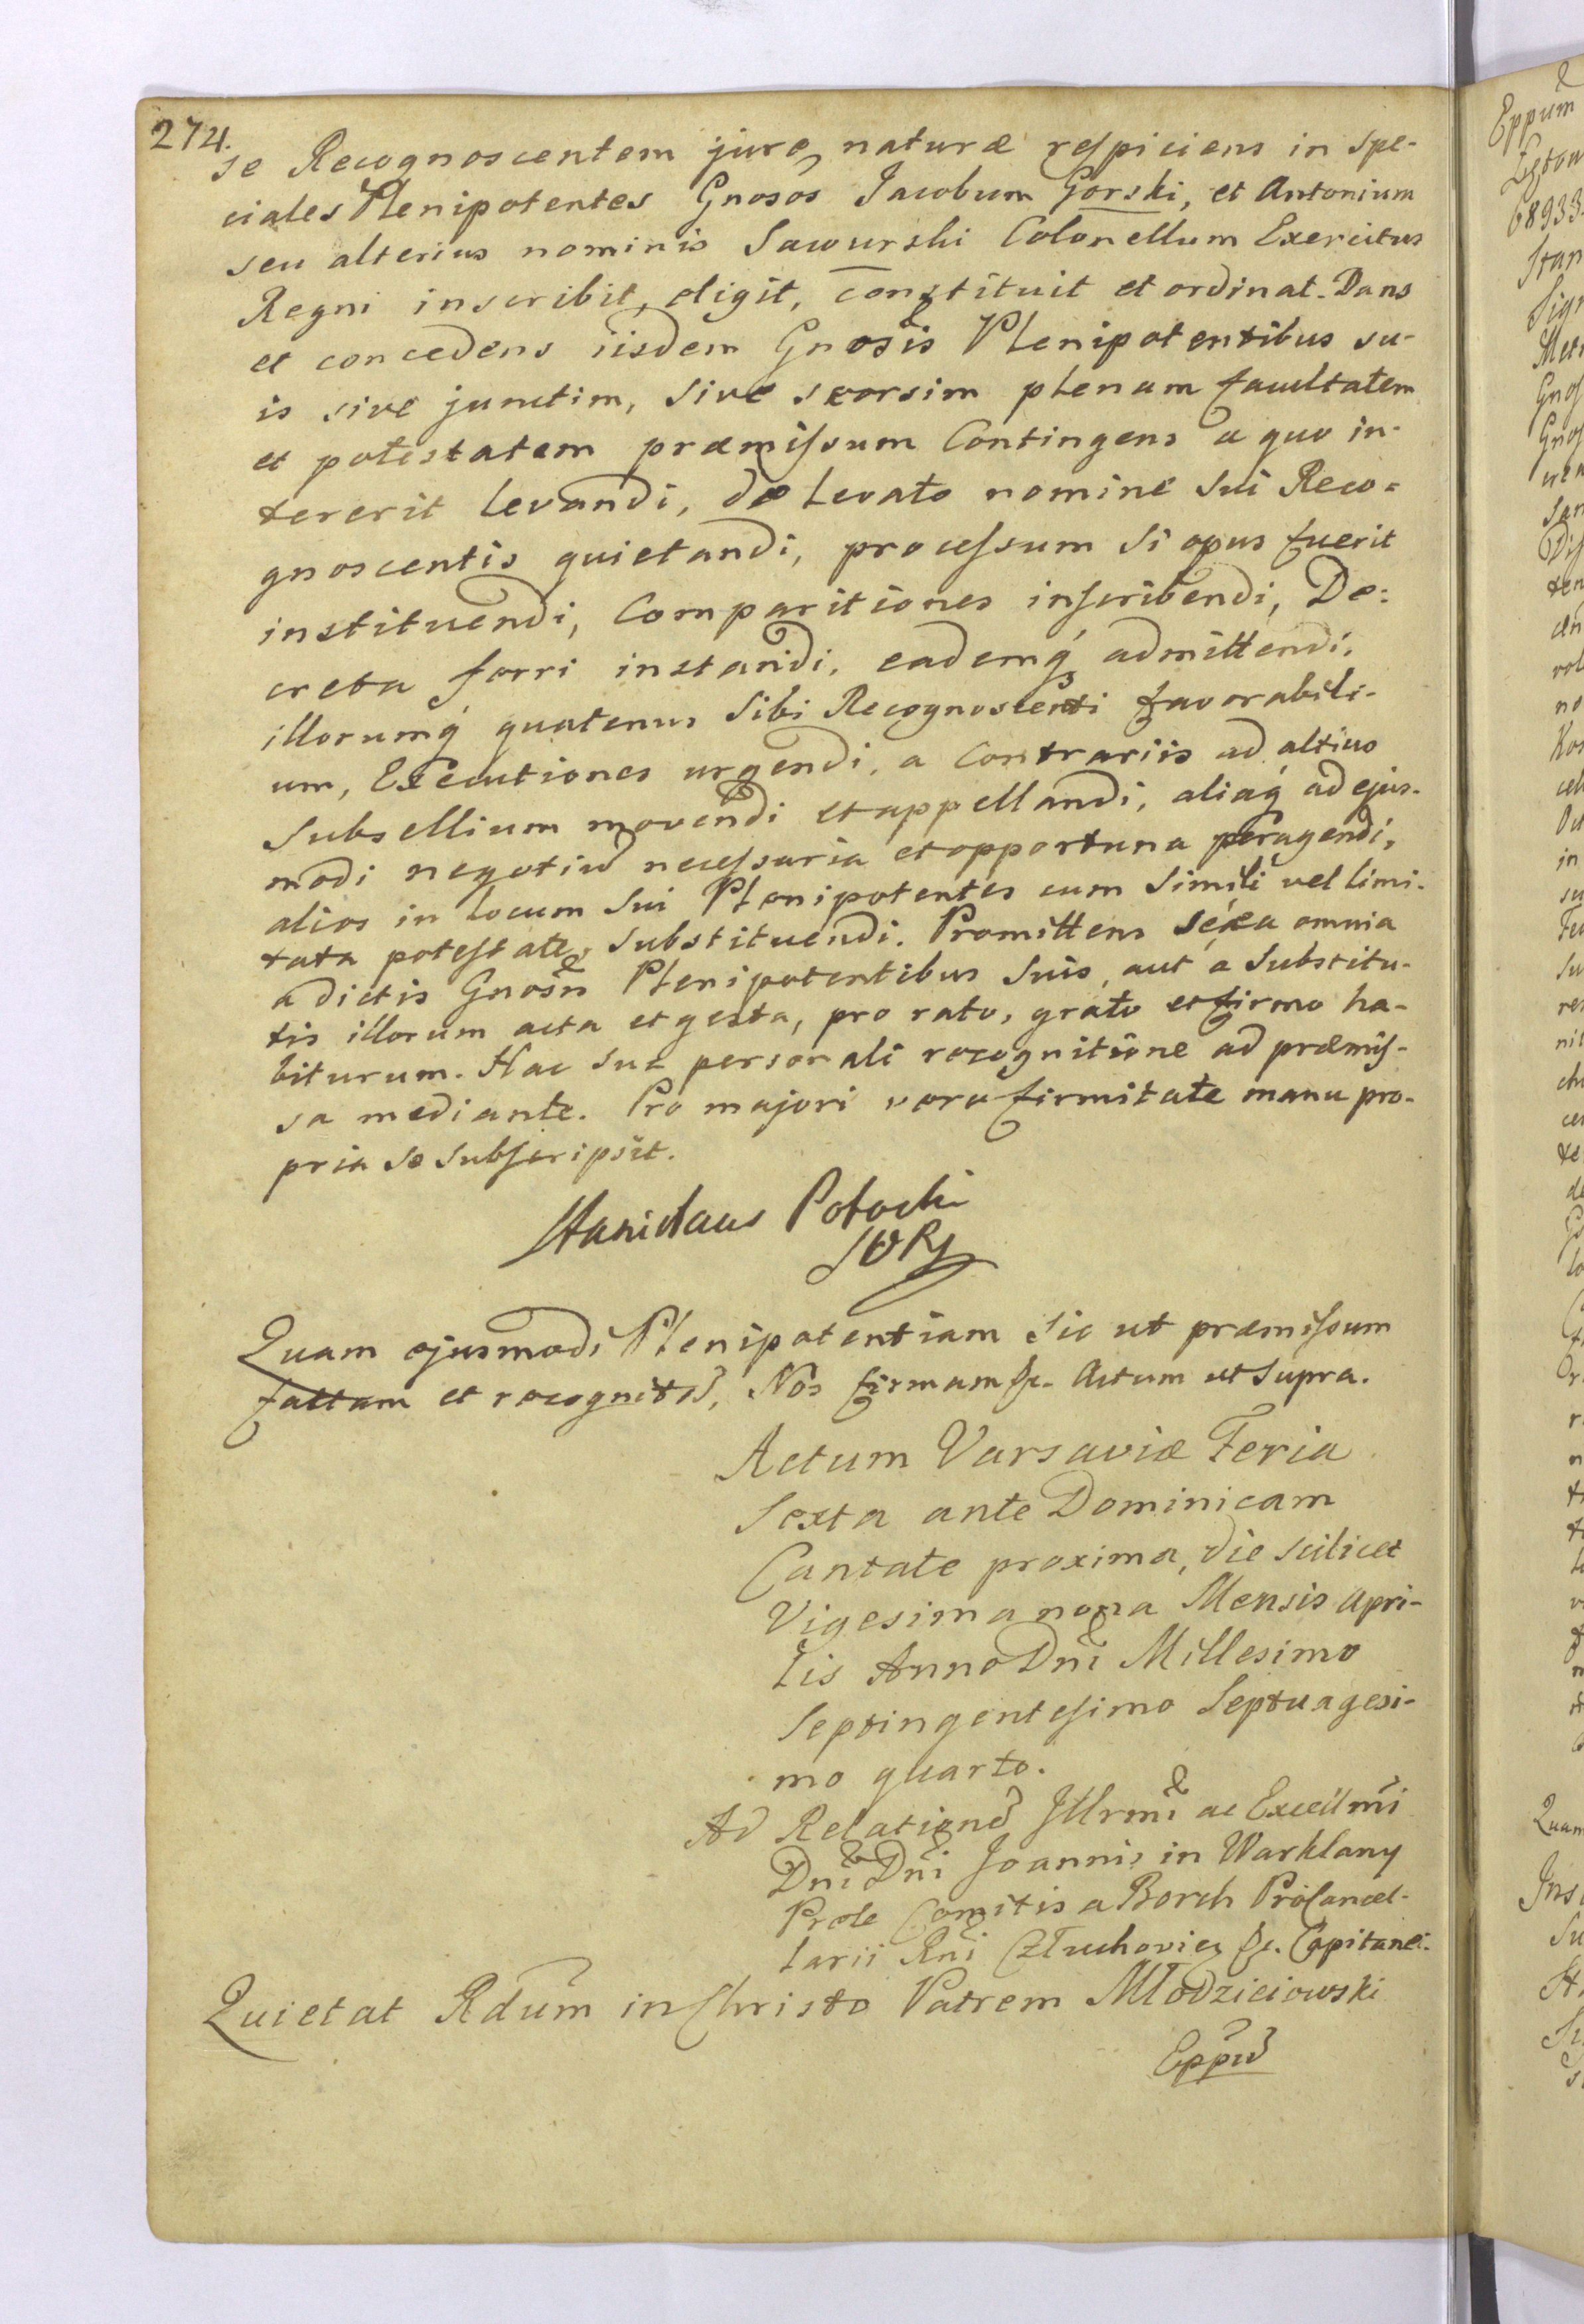 274.
se Recognoscentem jure naturæ respiciens in Spe-
ciales Plenipotentes Gnosos Jacobum Gorski, et Antonium
seu alterius nominis Sawurski Colonellum Exercitus
Regni inscribit, eligit, constituit et ordinat. Dans
et concedens iisdem Gnosis Plenipotentibus su-
is sive junctim, sive seorsim plenam facultatem
et potestatem præmissum Contingens a quo in-
tererit levandi, de levato nomine sui Reco-
gnoscentis quietandi, processum si opus fuerit
instituendi, Comparitiones inscribendi, De-
creta ferri instandi, eademq́ admittendi,
illorumq́ quatenus sibi Recognoscenti favorabili-
um, Executiones urgendi, a Contrariis ad altius
Subsellium movendi et appellandi, aliaq́ ad ejus-
modi negotiu necessaria et opportuna peragendi,
alios in locum sui Plenipotentes cum simili vel limi-
tata potestate, substituendi. Promittens se ea omnia
a dictis Gnosis Plenipotentibus suis, aut a Substitu-
tis illorum acta et gesta, pro rato, grato et firmo ha-
biturum. Hac sua personali recognitione ad præmis-
sa mediante. Pro majori vero firmitate manu pro-
pria se subscripsit.
Stanislaus Potocki
Quam ejusmodi Plenipotentiam sic ut præmissum
factam et recognitã, Nos firmam &c. Actum ut Supra.
Actum Varsaviæ Feria
Sexta ante Dominicam
Cantate proxima, die scilicet
Vigesima nona Mensis Apri-
lis Anno Dni Millesimo
Septingentesimo Septuagesi-
mo quarto.
Ad Relationẽ Jllrmi ac Excellmi
Dni Dni Joannis in Warklany
Prele Comitis a Borch Procancel-
larii Rni Człuchovien &c. Capitanei.
Quietat Rdum in Christo Patrem Młodzieiowski
Eppũ